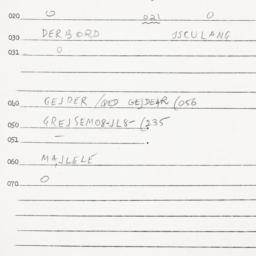 020 0 021 0
030 DERBORD JSCULANG
031 0
040 GEJDER / GEJDEAR (056
050 GREJSEM08-JL8- (235
051 —
060 MAJLELE
070 0